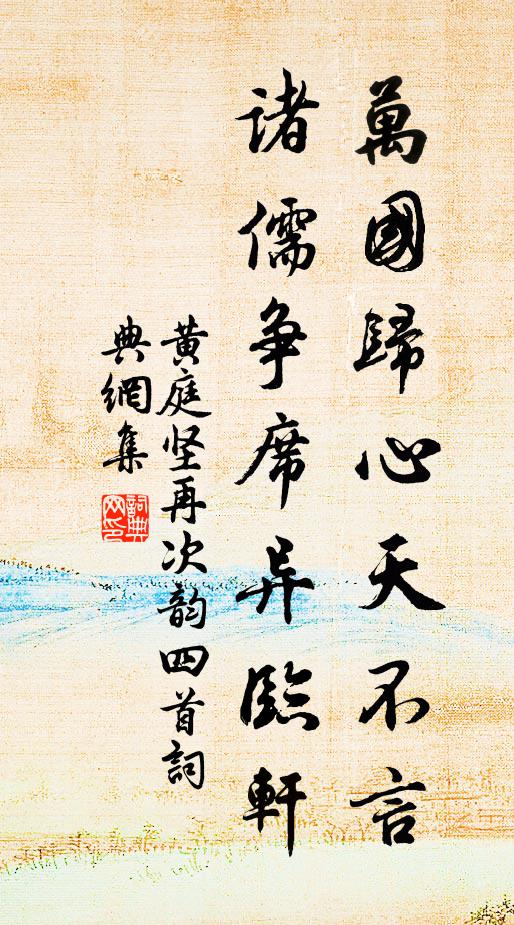 萬國歸心天不言
諸儒争席异臨軒
黄庭坚再次韵四首詞
典網集
詞典網印